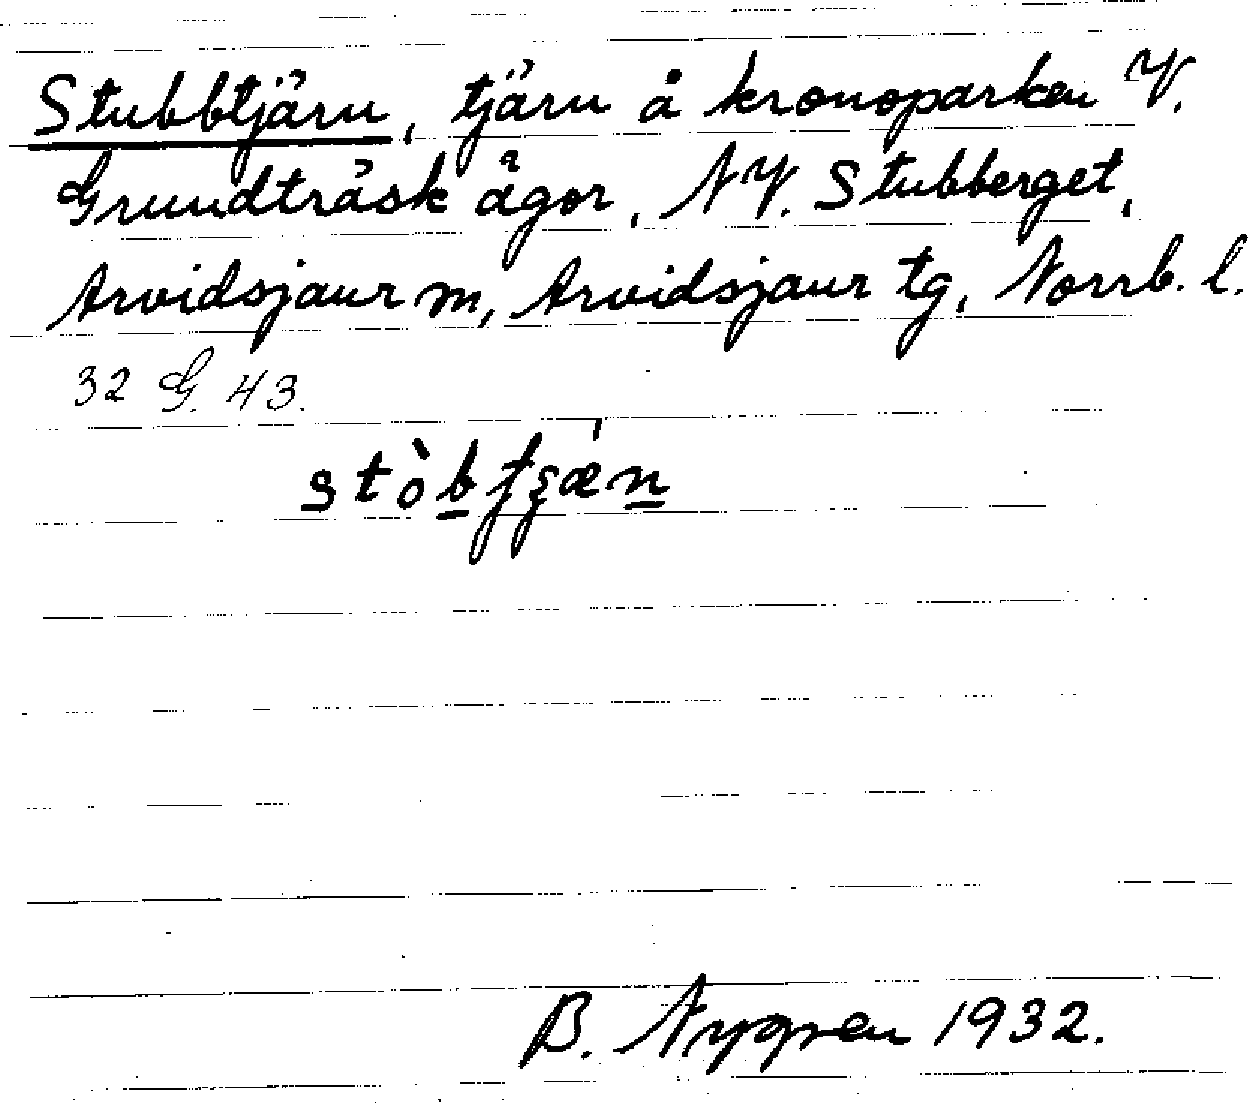 Stubbtjärn, tjärn å kronoparken V.
Grundträsk ägor, NV. Stubberget,
Arvidsjaur m, Arvidsjaur tg, Norrb. l.
32 G. 43.
B. Nygren 1932.